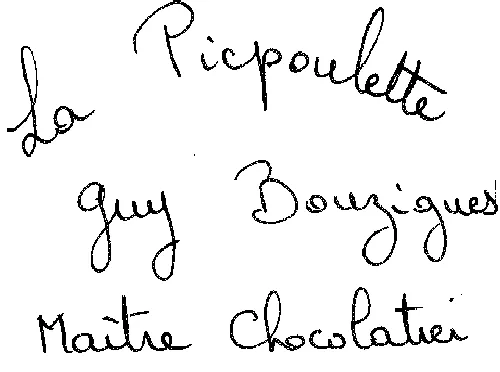 La Picpoulette
Guy Bouzigues
Maître Chocolatier